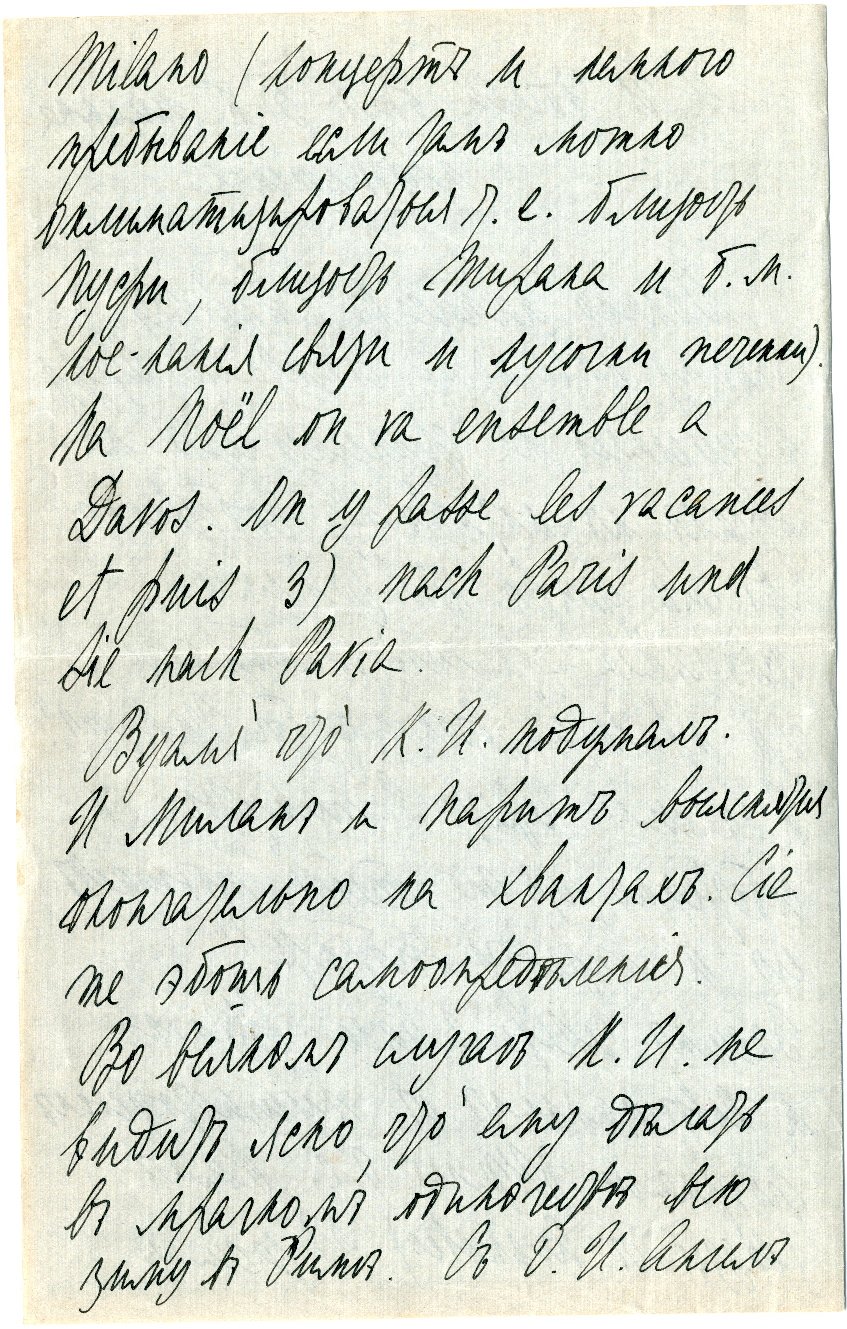 Milano (концертъ и немного
пребыванiе если тамъ можно
оклиматизироваться т. е. близость
Пусри, близость Тирана и б. м.
кое-какiя связи и кусочки печенки).
На Noël on va ensemble a
Davos. On y passe les vacances
et puis 3) nach Paris und
Sie nach Pavia.
Вуаля́ что́ К. И. подумалъ.
И Миланъ и Парижъ выяснятся
окончательно на хвантахъ. Cie
же эботъ самоопредѣленiя.
Во всякомъ случаѣ К. И. не
видитъ ясно, что́ ему дѣлать
въ мрачномъ одиночествѣ всю
зиму въ Римѣ. Съ О. И.